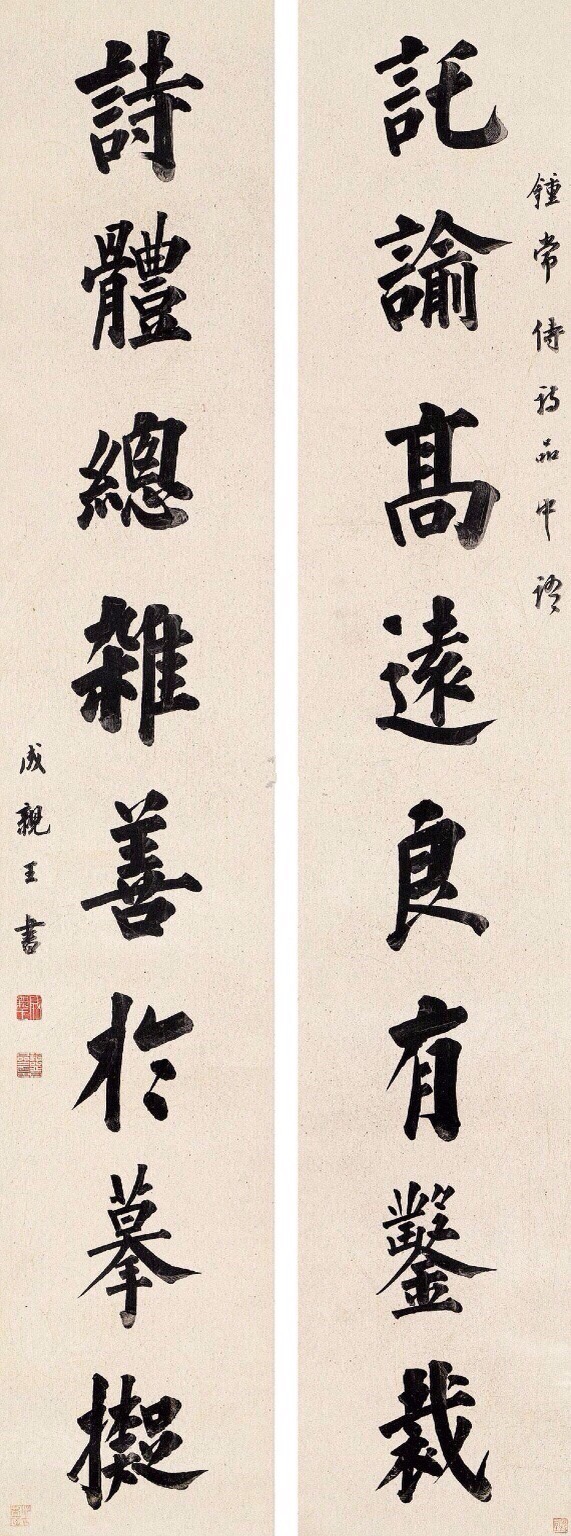 鍾常侍詩品中語
託諭髙遠良有鑿裁
詩體總雜善於摹擬
成親王書